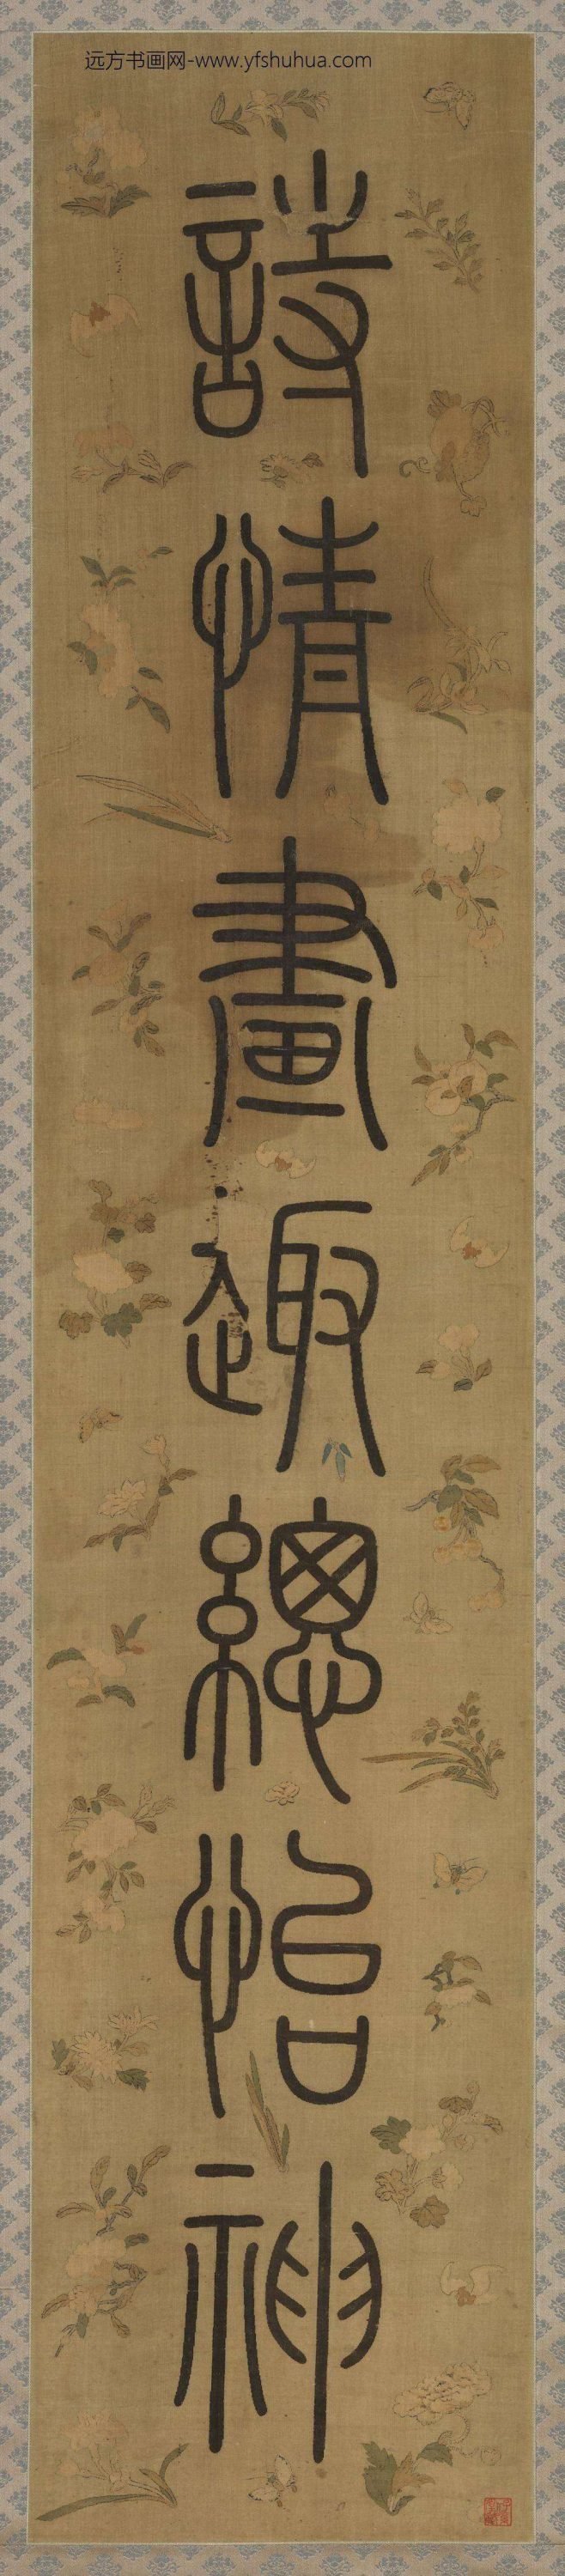 远方书画网-www.yfshuhua.com
詩情畫趣總怡神